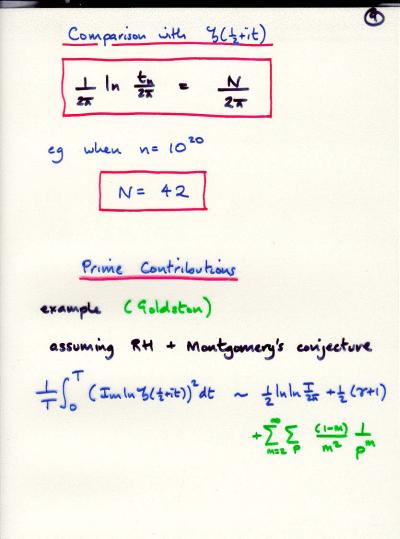 9
Comparison with ζ(½+it)
1/2π ln tₙ/2π = N/2π
eg when n = 10²⁰
N = 42
Prime Contributions
example (Goldston)
assuming RH + Montgomery's conjecture
1/T ∫₀ᵀ (Im ln ζ(½+it))² dt ~ ½ ln ln T/2π + ½ (γ+1)
+ Σ_{m=2}^∞ Σ_p (1-m)/m² 1/p^m